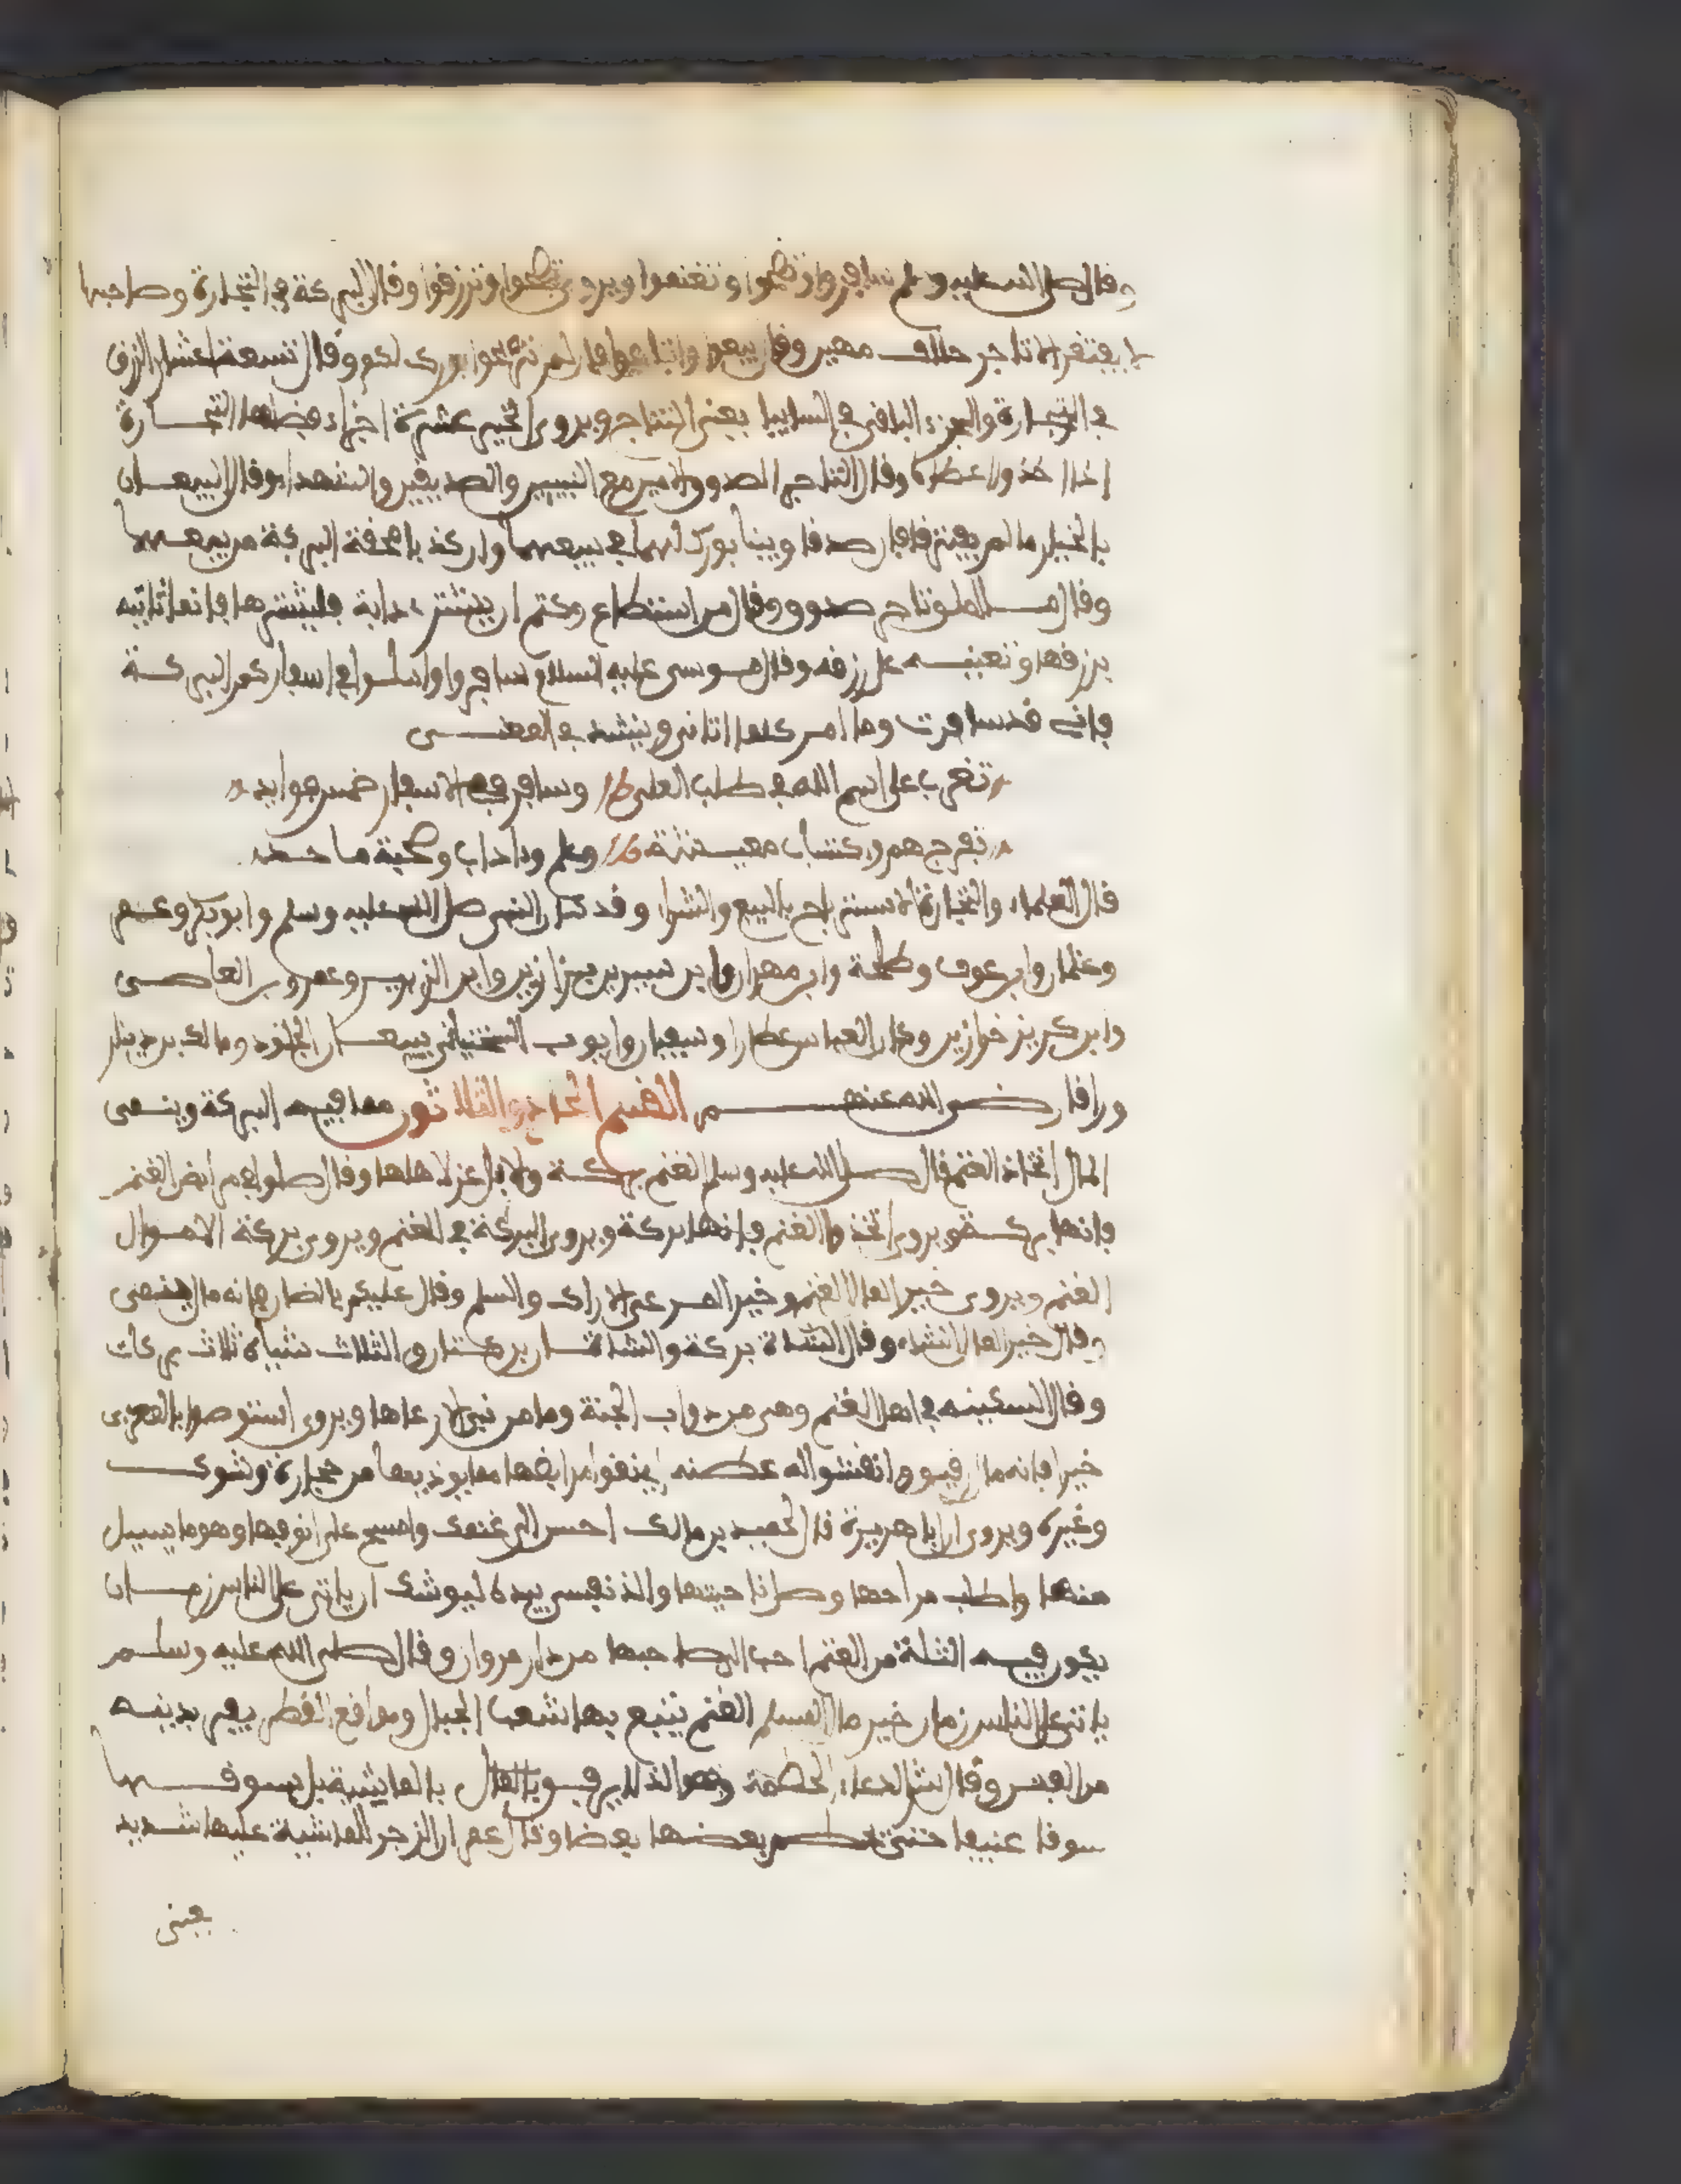 وقال صلى الله عليه وسلم سافروا وتصحوا وتغنموا ويروى تصحوا وترزقوا وقال البركة في التجارة وصاحبها
لا يفتقر الا تاجر حلاف مهين وقال بيعوا وابتاعوا فان لم تربحوا بورك لكم وقال تسعة اعشار الرزق
في التجارة والجزء الباقي في السابيا يعني النتاج ويروى الخير عشرة اجزاء افضلها التجارة
اذا اخذ واعطاه وقال التاجر الصدوق الامين مع النبيين والصديقين والشهداء وقال البيعان
بالخيار ما لم يفترقا فان صدقا وبينا بورك لهما في بيعهما وان كذبا محقت البركة من بيعهما
وقال تاجر صدوق وقال من استطاع منكم ان يشتري دابة فليشترها فانها تاتيه
برزقها وتعينه على رزقه وقال موسى عليه السلام سافروا واملوا في اسفاركم البركة
فاني قد سافرت وما امر كلما اتاني وينشد في المعنى
تغرب على اسم الله في طلب العلى وسافر ففي الاسفار خمس فوايد
تفرج هم واكتساب معيشة وعلم واداب وصحبة ماجد
قال العلماء والتجارة الاسترباح بالبيع والشراء وقد كان النبي صلى الله عليه وسلم وابو بكر وعمر
وعثمان وابن عوف وطلحة وابن مهران وابن سيرين بزازين وابن الزبير وعمرو بن العاصى
وابن كريز خزازين وكان العباس عطارا وسفيان وايوب السختياني يبيعان الجلود ومالك بن دينار
وراقا رضي الله عنهم القسم الحادي والثلاثون مما فيه البركة وينمى
المال اتخاذ الغنم قال صلى الله عليه وسلم الغنم بركة والابل عز لاهلها وقال صلوا في مرابض الغنم
فانها بركة ويروى اتخذوا الغنم فانها بركة ويروى البركة في الغنم ويروى بركة الاموال
الغنم ويروى خير المال الغنم وخير المرعى الاراك والسلم وقال عليكم بالضان فانه مال ينمى
وقال خير المال الشاء وقال الشاة بركة والشاتان بركتان والثلاث شياه ثلاث بركات
وقال السكينة في اهل الغنم وهي من دواب الجنة وما من نبي الا رعاها ويروى استوصوا بالمعزى
خيرا فانه مال رقيق وانقشوا له عطنه اي نقوا مرابضها مما يوذيها من حجارة وشوك
وغيره ويروى ان ابا هريرة قال لحميد بن مالك احسن الى غنمك وامسح على انوفها وهو ما يسيل
منها واطب مراحها وصل ناحيتها والذي نفسي بيده ليوشك ان ياتي على الناس زمان
يكون فيه الثلة من الغنم احب الى صاحبها من دار مروان وقال صلى الله عليه وسلم
ياتي على الناس زمان خير مال المسلم الغنم يتبع بها شعب الجبال ومواقع القطر يفر بدينه
من الفتن وقال شر الرعاء الحطمة وهو الذي لا يرفق بالماشية بل يسوقها
سوقا عنيفا حتى يحطم بعضها بعضا وقال عمر ان الزجر للماشية عليها شديد
يعني